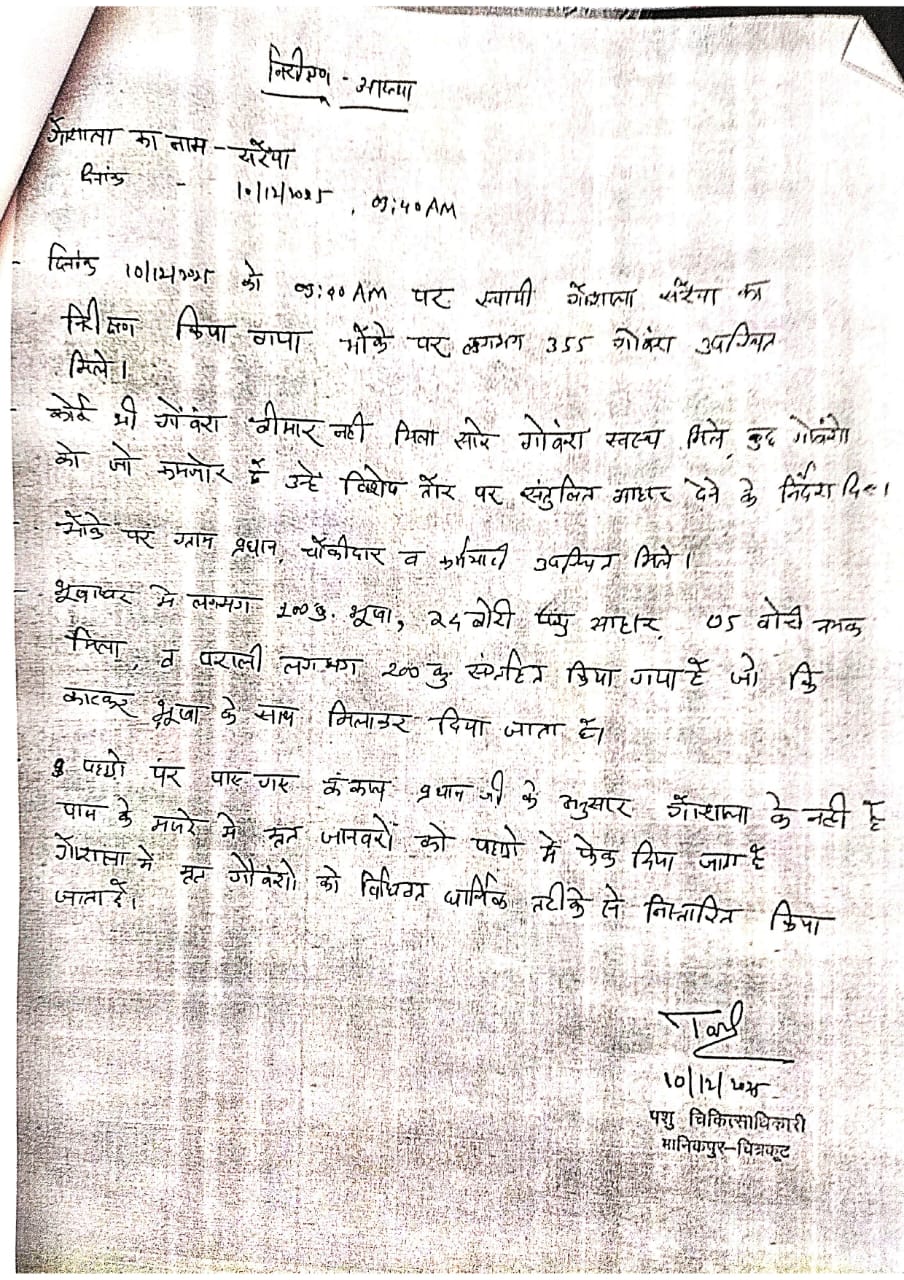 निरीक्षण - आख्या
गौशाला का नाम - सरैंया
दिनांक - 10/12/2025, 09:40 AM
दिनांक 10/12/2025 को 09:40 AM पर स्थायी गौशाला सरैंया का
निरीक्षण किया गया मौके पर लगभग 355 गोवंश उपस्थित
मिले।
कोई भी गौवंश बीमार नही मिला सारे गोवंश स्वस्थ मिले कुछ गोवंशो
को जो कमजोर हैं उन्हे विशेष तौर पर संतुलित आहार देने के निर्देश दिए।
मौके पर ग्राम प्रधान, चौकीदार व कर्मचारी उपस्थित मिले।
भूषाघर मे लगभग 200 कु. भूषा, 24 बोरी पशु आहार, 05 बोरी नमक
मिला, व पराली लगभग 200 कु संग्रहित किया गया है जो कि
काटकर भूषा के साथ मिलाकर दिया जाता है।
पर पाए गए कंकाल प्रधान जी के अनुसार गौशाला के नही हैं
पास के मजरे मे मृत जानवरों को में फेक दिया जाता है
गौशाला मे मृत गौवंशो को विधिवत धार्मिक तरीके से निस्तारित किया
जाता है।
10/12/2025
पशु चिकित्साधिकारी
मानिकपुर-चित्रकूट